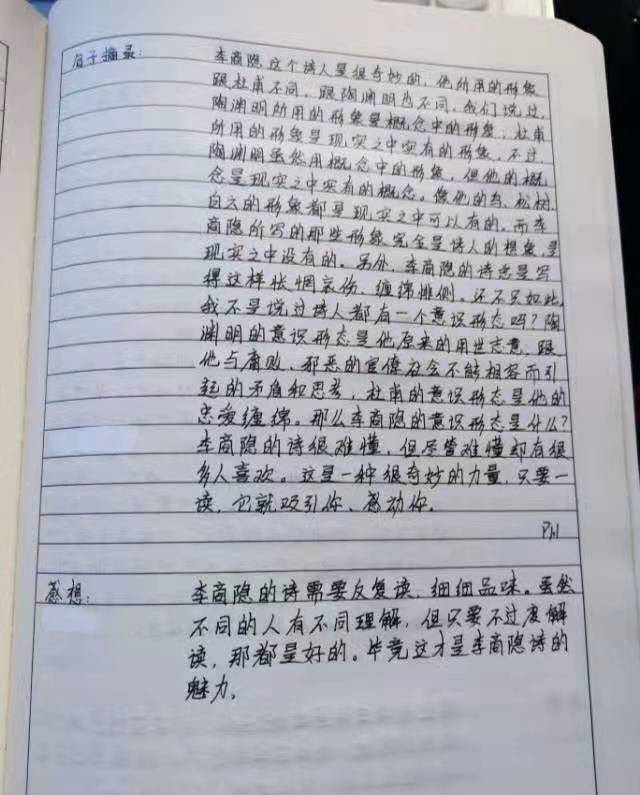 句子摘录：
李商隐这个诗人是很奇妙的，他所用的形象
跟杜甫不同，跟陶渊明也不同。我们说过，
陶渊明所用的形象是概念中的形象，杜甫
所用的形象是现实之中实有的形象，不过
陶渊明虽然用概念中的形象，但他的概
念是现实之中实有的概念。像他的鸟、松树
白云的形象都是现实之中可以有的。而李
商隐所写的那些形象完全是诗人的想象，是
现实之中没有的。另外，李商隐的诗总是写
得这样怅惘哀伤、缠绵悱恻。还不只如此，
我不是说过诗人都有一个意识形态吗？陶
渊明的意识形态是他原来的用世志意，跟
他与腐败、邪恶的官僚社会不能相容而引
起的矛盾和思考，杜甫的意识形态是他的
忠爱缠绵。那么李商隐的意识形态是什么？
李商隐的诗很难懂，但尽管难懂却有很
多人喜欢。这是一种很奇妙的力量，只要一
读，它就吸引你、感动你。
感想：
李商隐的诗需要反复读，细细品味。虽然
不同的人有不同理解，但只要不过度解
读，那都是好的。毕竟这才是李商隐诗的
魅力。